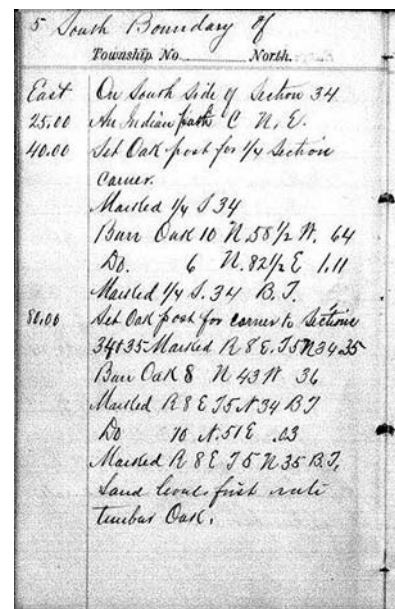 5 South Boundary of
Township No. North.
East On South Side of Section 34
25.00 An Indian path C N. E.
40.00 Set Oak post for 1/4 Section
corner.
Marked 1/4 S 34
Burr Oak 10 N. 58 1/2 W. 64
Do. 6 N. 82 1/2 E 1.11
Marked 1/4 S. 34 B. T.
80.00 Set Oak post for corner to Sections
34 & 35 Marked R 8 E. T 5 N 34.35
Burr Oak 8 N 43 W 36
Marked R 8 E T 5 N 34 B T
Do 10 N. 51 E .03
Marked R 8 E T 5 N 35 B. T.
Land level first rate
timber Oak.